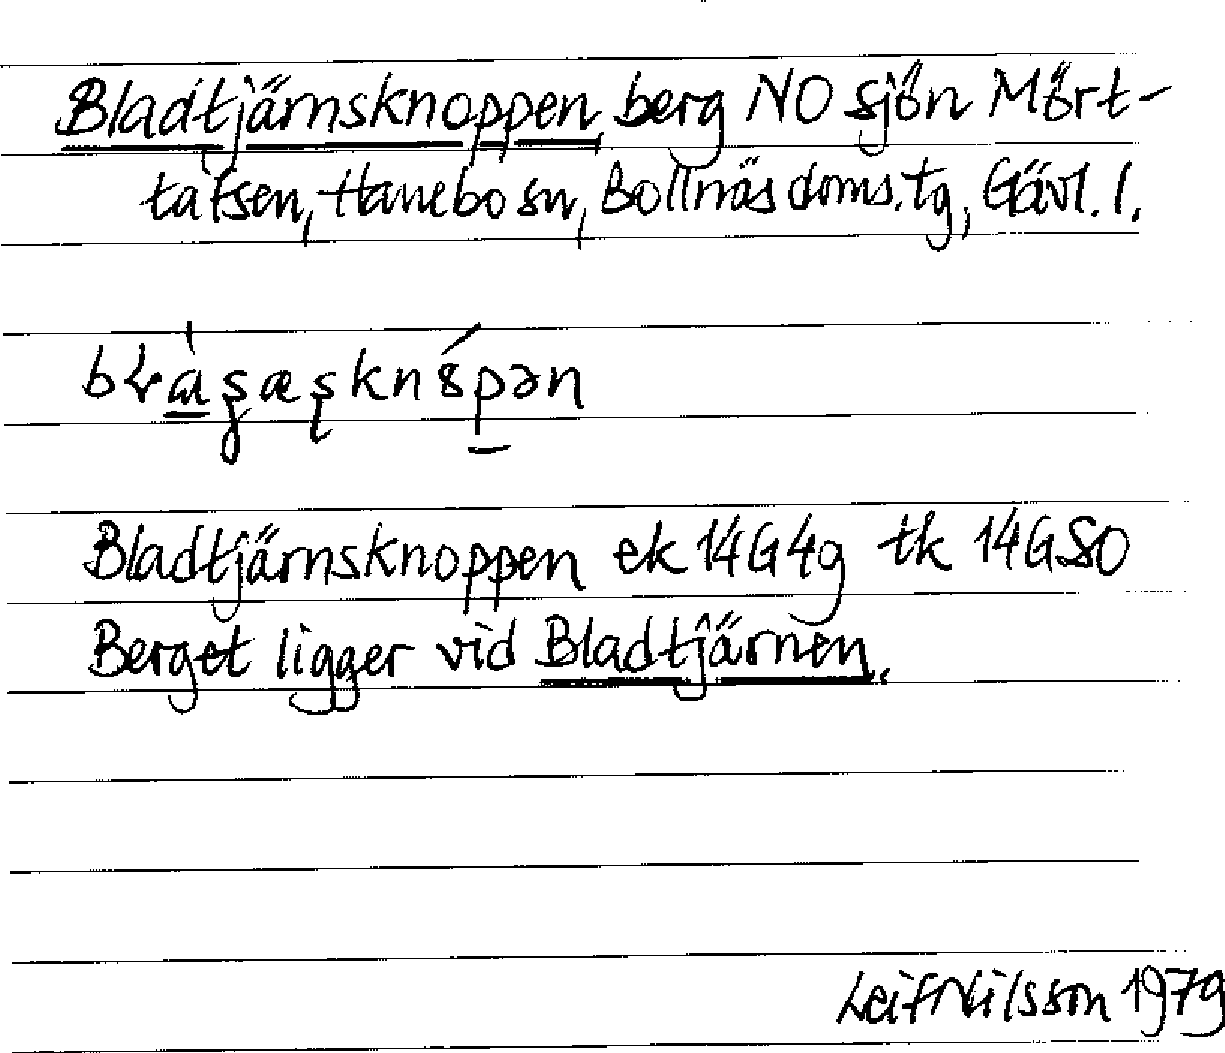 Bladtjärnsknoppen berg NO sjön Mört-
tåtsen, Hanebo sn, Bollnäs doms. tg, Gävl. l.
Bladtjärnsknoppen ek 14G4g tk 14GSO
Berget ligger vid Bladtjärnen.
Leif Nilsson 1979